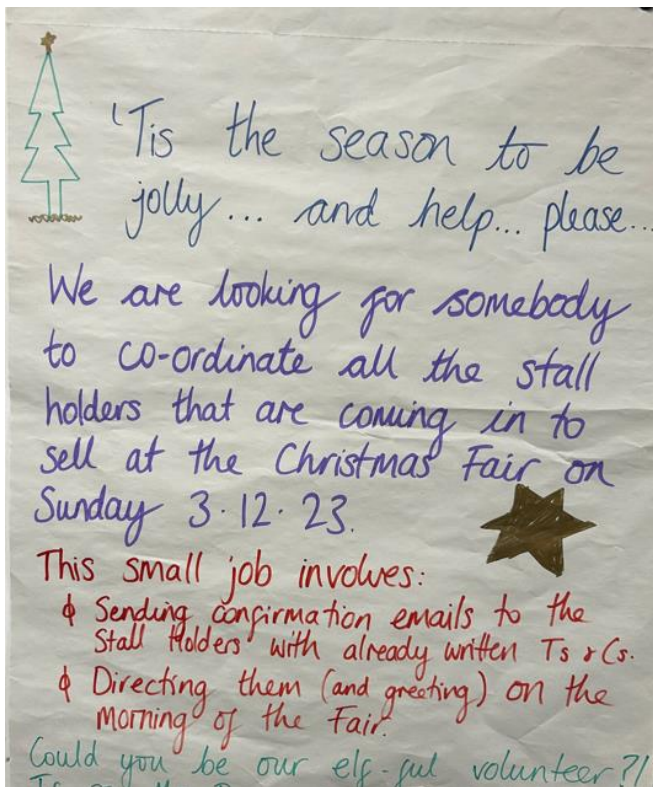 'Tis the season to be
jolly... and help... please...
We are looking for somebody
to co-ordinate all the stall
holders that are coming in to
sell at the Christmas Fair on
Sunday 3.12.23.
This small job involves:
Sending confirmation emails to the
Stall Holders with already written Ts & Cs.
Directing them (and greeting) on the
Morning of the Fair.
Could you be our elf-ful volunteer?!